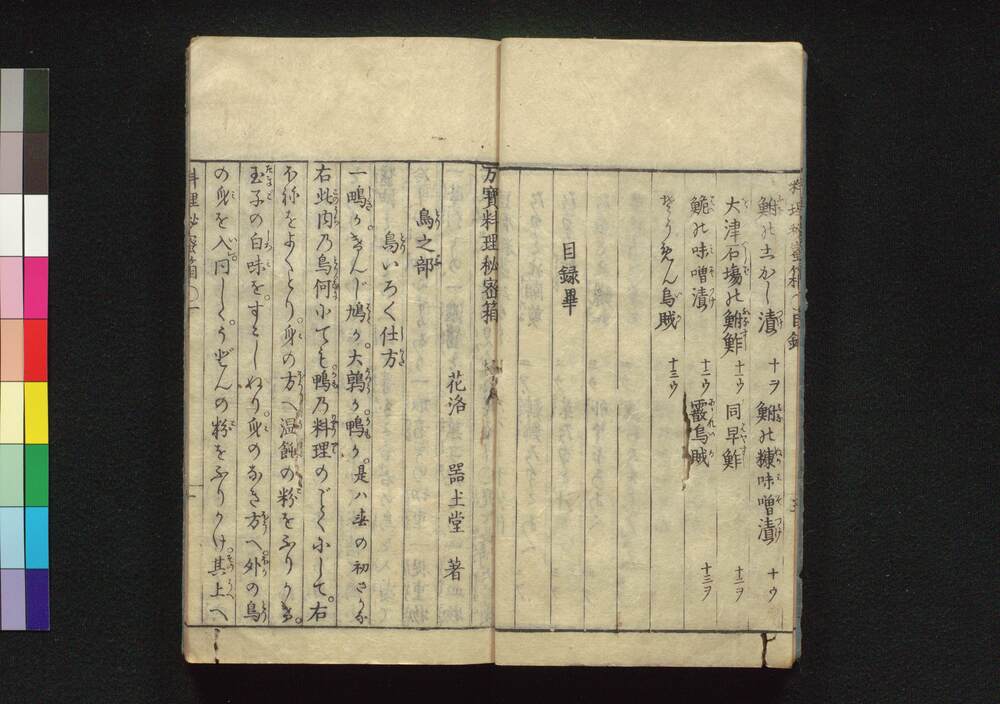 鮒の土かし漬 十ヲ 鮒の糠味噌漬 十ウ
大津石塲の鮒鮓 十一ウ 同早鮓 十二ヲ
鮠の味噌漬 十二ウ 霰烏賊 十三ヲ
烏賊 十三ウ
目録畢
万寳料理秘密箱
花洛 器土堂 著
鳥之部
鳥いろ〱仕方
一鴫か。きんじ鳩か。大鶉か。鴨か。是ハ春の初さかな
右此内乃鳥何にても鴨乃料理のごとくにして。右
ほねをよくとり。身の方へ温飩の粉をふりかけ。
玉子の白味を。すこしねり。身のなき方へ外の鳥
の身を入。同しくうどんの粉をふりかけ。其上へ
料理秘密箱 一